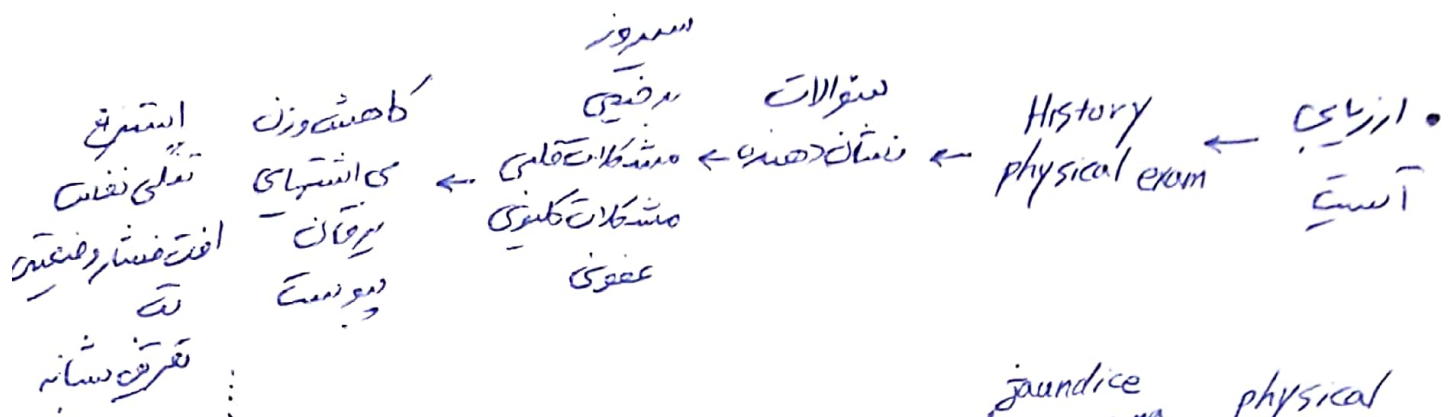 • ارزیابی آسیت ← History physical exam ← سوالات نشان دهنده ←
سیروز
بدخیمی
مشکلات قلبی
مشکلات کلیوی
عفونی
←
کاهش وزن
بی اشتهایی
یرقان
یبوست
استفراغ
تنگی نفس
افت فشار وضعیتی
تب
jaundice
physical